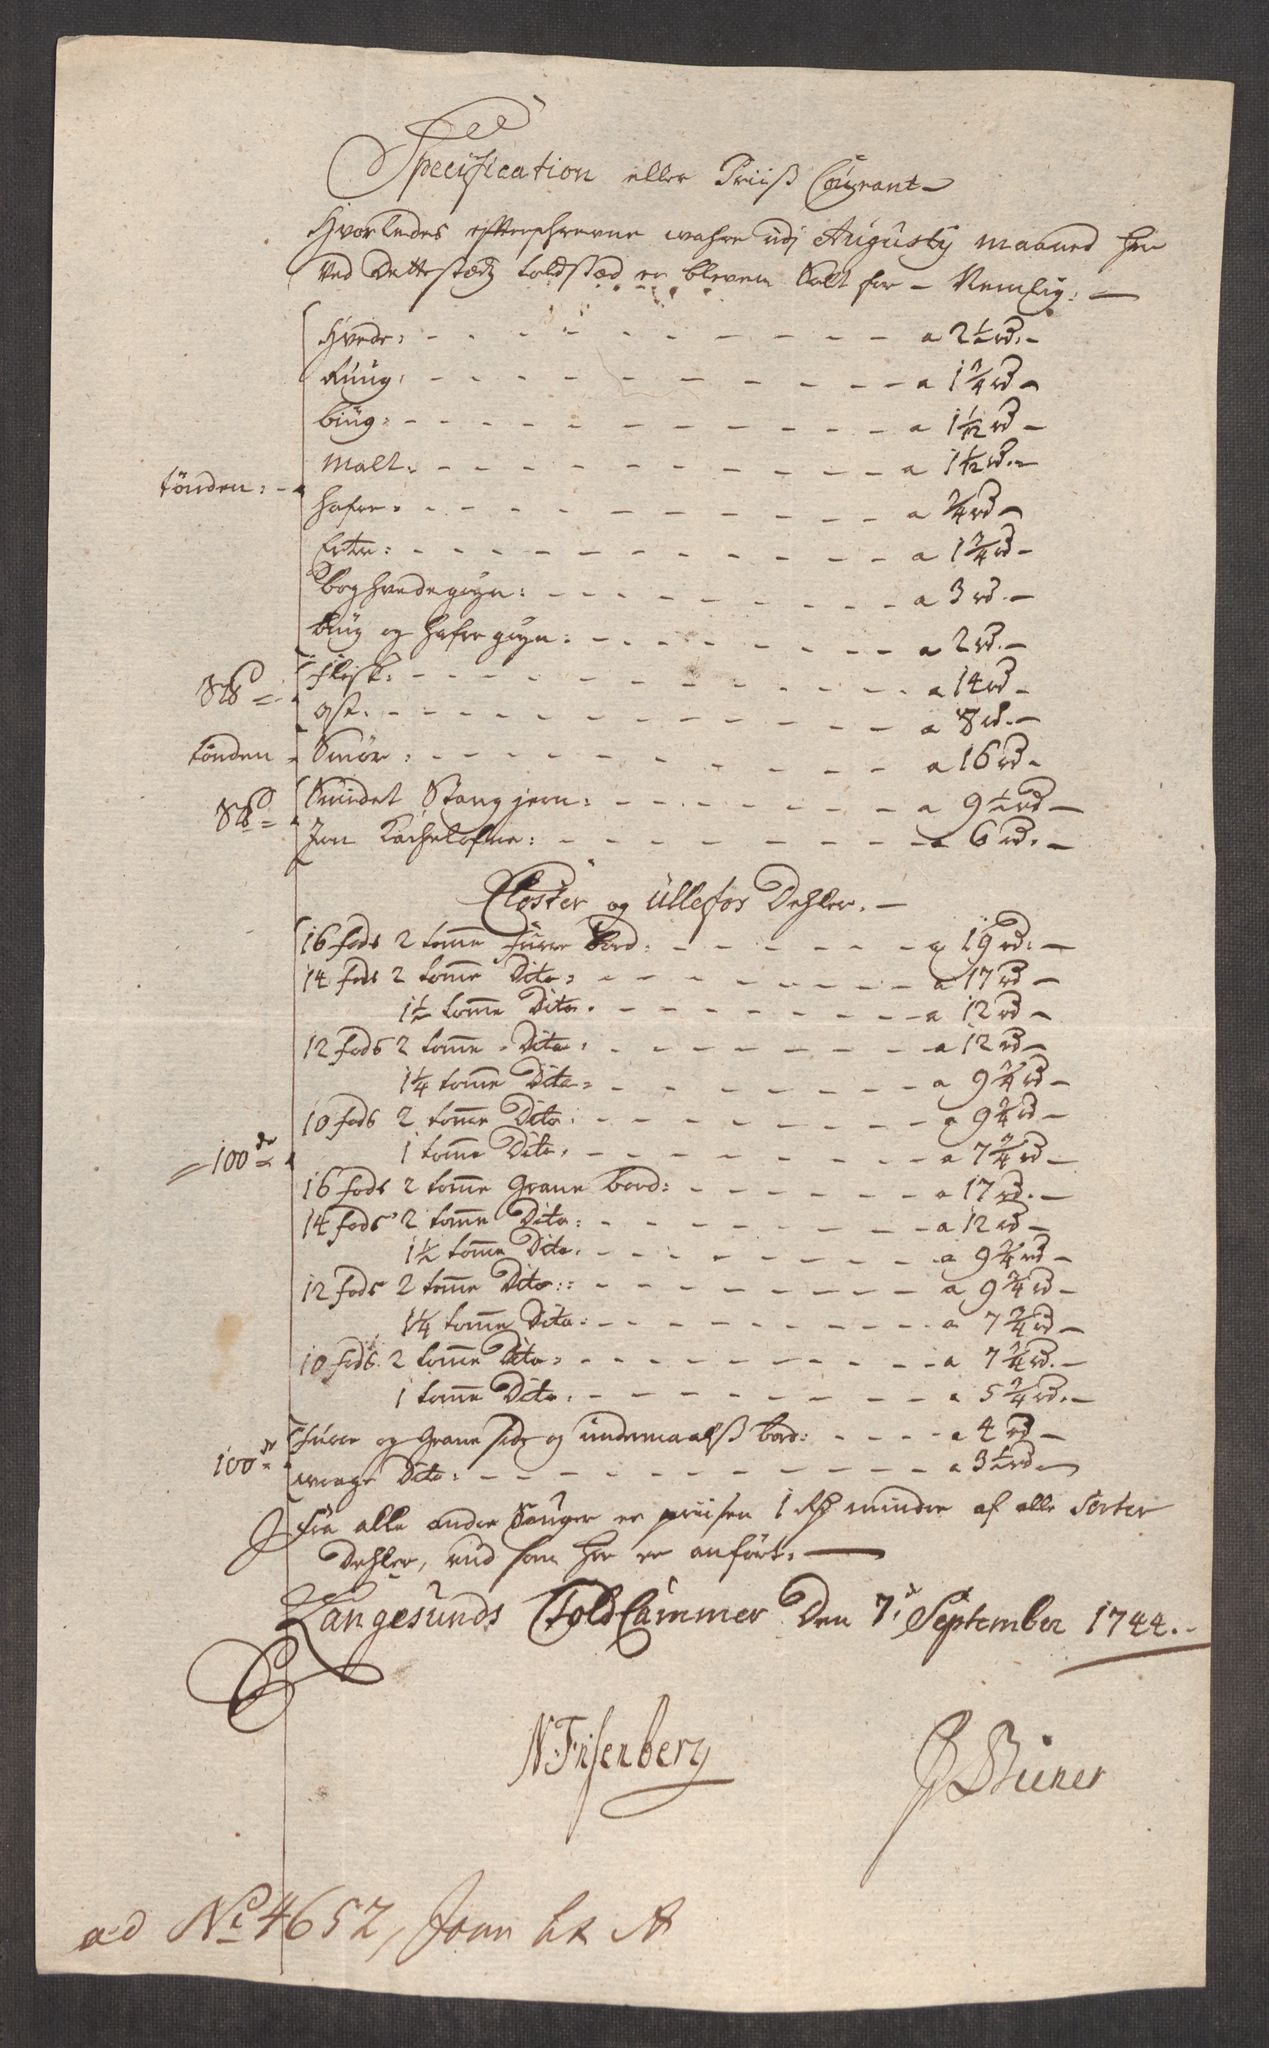 Specification eller Priiß Courant
Hvorledes efterschrevne wahre udj Augusty maaned her
ved Dette stædz toldstæd er bleven Solt for - Nemlig:
Hvede: a 2½ rd.
Rüug: a 1¾ rd
büug: a 1 1/12 rd
Malt: a 1 1/12 rd.
tönden:
hafre: a ¾ rd
Erter: a 1¾ rd
boghvedegrÿn: a 3 rd.
büg og hafregrÿn: a 2 rd.
S℔:
Flesk: a 14 rd
ost: a 8 rd.
tönden Smör: a 16 rd
S℔
Smidet Stangjern: a 9½ rd
Jern Kachelofne: a 6 rd.
Closter og Üllefos Dehler.
16 fods 2 tomme furre bord: a 19 rd.
14 fods 2 tomme Dito: a 17 rd
1½ tomme Dito: a 12 rd
12 fods 2 tomme Dito: a 12 rd
1¼ tomme Dito: a 9¾ rd
10 fods 2 tomme Dito: a 9¾ rd
100de
1 tomme Dito: a 7¾ rd
16 fods 2 tomme Grane bord: a 17 rd.
14 fods 2 tomme Dito: a 12 rd
1½ tomme Dito: a 9¾ rd
12 fods 2 tomme Dito: a 9¾ rd
1¼ tomme Dito: a 7¾ rd
10 fods 2 tomme Dito: a 7¾ rd.
1 tomme Dito: a 5¾ rd.
furre og Grane side og undermaalß bord: a 4 rd
100de
wrage Dito: a 3½ rd
Fra alle andre Sauger er priisen 1 Rd mindre af alle Sorter
Dehler, end som her er anfört.
Langesunds Told Cammer Den 7de September 1744.
N Frisenberg
ad No 4652,